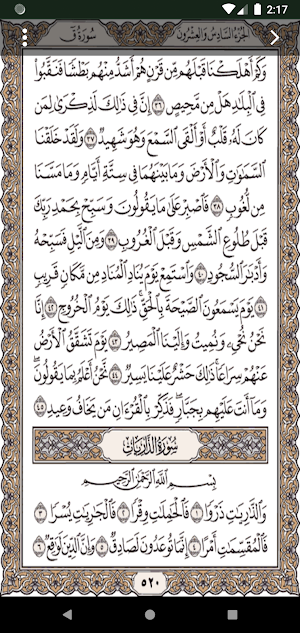 2:17
الجزء السادس والعشرون
سورة ق
وَكَمْ أَهْلَكْنَا قَبْلَهُم مِّن قَرْنٍ هُمْ أَشَدُّ مِنْهُم بَطْشًا فَنَقَّبُوا۟
فِى ٱلْبِلَٰدِ هَلْ مِن مَّحِيصٍ ٣٦ إِنَّ فِى ذَٰلِكَ لَذِكْرَىٰ لِمَن
كَانَ لَهُۥ قَلْبٌ أَوْ أَلْقَى ٱلسَّمْعَ وَهُوَ شَهِيدٌ ٣٧ وَلَقَدْ خَلَقْنَا
ٱلسَّمَٰوَٰتِ وَٱلْأَرْضَ وَمَا بَيْنَهُمَا فِى سِتَّةِ أَيَّامٍ وَمَا مَسَّنَا
مِن لُّغُوبٍ ٣٨ فَٱصْبِرْ عَلَىٰ مَا يَقُولُونَ وَسَبِّحْ بِحَمْدِ رَبِّكَ
قَبْلَ طُلُوعِ ٱلشَّمْسِ وَقَبْلَ ٱلْغُرُوبِ ٣٩ وَمِنَ ٱلَّيْلِ فَسَبِّحْهُ
وَأَدْبَٰرَ ٱلسُّجُودِ ٤٠ وَٱسْتَمِعْ يَوْمَ يُنَادِ ٱلْمُنَادِ مِن مَّكَانٍ قَرِيبٍ
٤١ يَوْمَ يَسْمَعُونَ ٱلصَّيْحَةَ بِٱلْحَقِّ ذَٰلِكَ يَوْمُ ٱلْخُرُوجِ ٤٢ إِنَّا
نَحْنُ نُحْىِۦ وَنُمِيتُ وَإِلَيْنَا ٱلْمَصِيرُ ٤٣ يَوْمَ تَشَقَّقُ ٱلْأَرْضُ
عَنْهُمْ سِرَاعًا ذَٰلِكَ حَشْرٌ عَلَيْنَا يَسِيرٌ ٤٤ نَّحْنُ أَعْلَمُ بِمَا يَقُولُونَ
وَمَآ أَنتَ عَلَيْهِم بِجَبَّارٍ فَذَكِّرْ بِٱلْقُرْءَانِ مَن يَخَافُ وَعِيدِ ٤٥
سُورَةُ الذَّارِيَاتِ
بِسْمِ ٱللَّهِ ٱلرَّحْمَٰنِ ٱلرَّحِيمِ
وَٱلذَّٰرِيَٰتِ ذَرْوًا ١ فَٱلْحَٰمِلَٰتِ وِقْرًا ٢ فَٱلْجَٰرِيَٰتِ يُسْرًا ٣
فَٱلْمُقَسِّمَٰتِ أَمْرًا ٤ إِنَّمَا تُوعَدُونَ لَصَادِقٌ ٥ وَإِنَّ ٱلدِّينَ لَوَٰقِعٌ ٦
٥٢٠